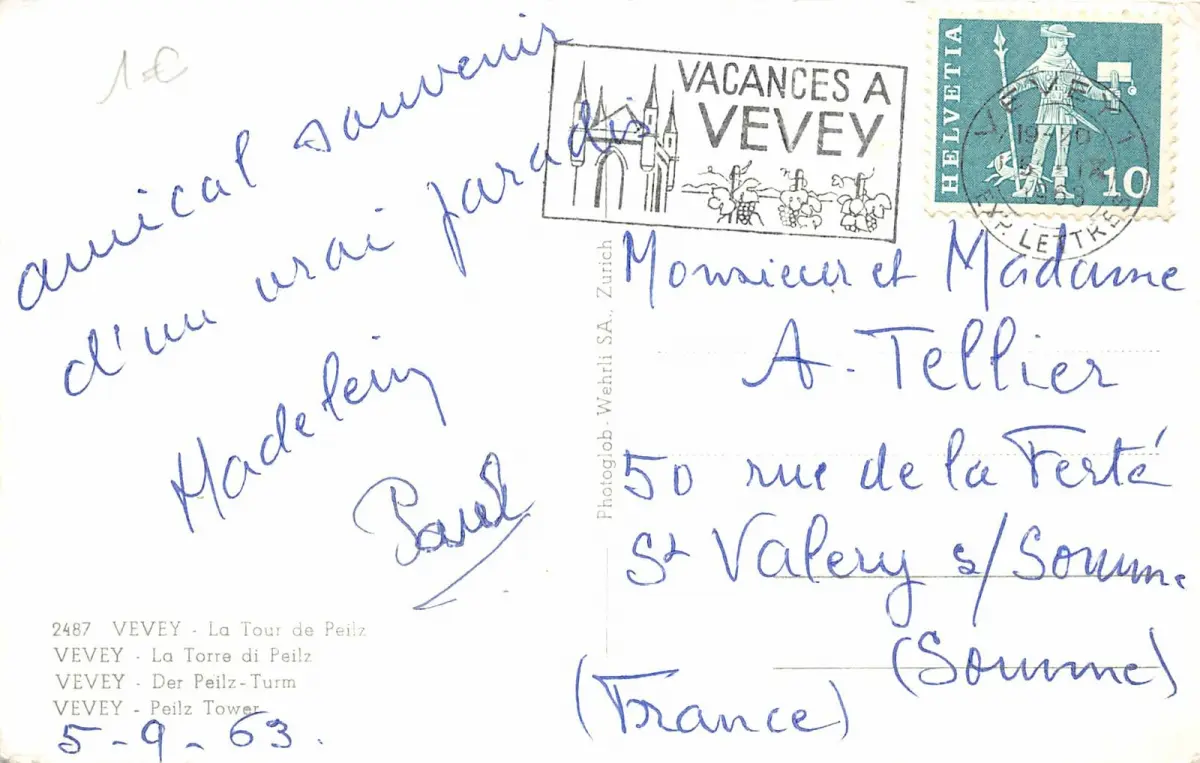 1€
amical souvenir
d'un vrai paradis
Madelein
2487 VEVEY - La Tour de Peilz
VEVEY - La Torre di Peilz
VEVEY - Der Peilz-Turm
VEVEY - Peilz Tower
5-9-63.
Photoglob-Wehrli SA., Zurich
VACANCES A
VEVEY
HELVETIA
10
VEVEY 1
1963
EXP. LETTRES
Monsieur et Madame
A. Tellier
50 rue de la Ferté
St Valery s/Somme
(Somme)
(France)